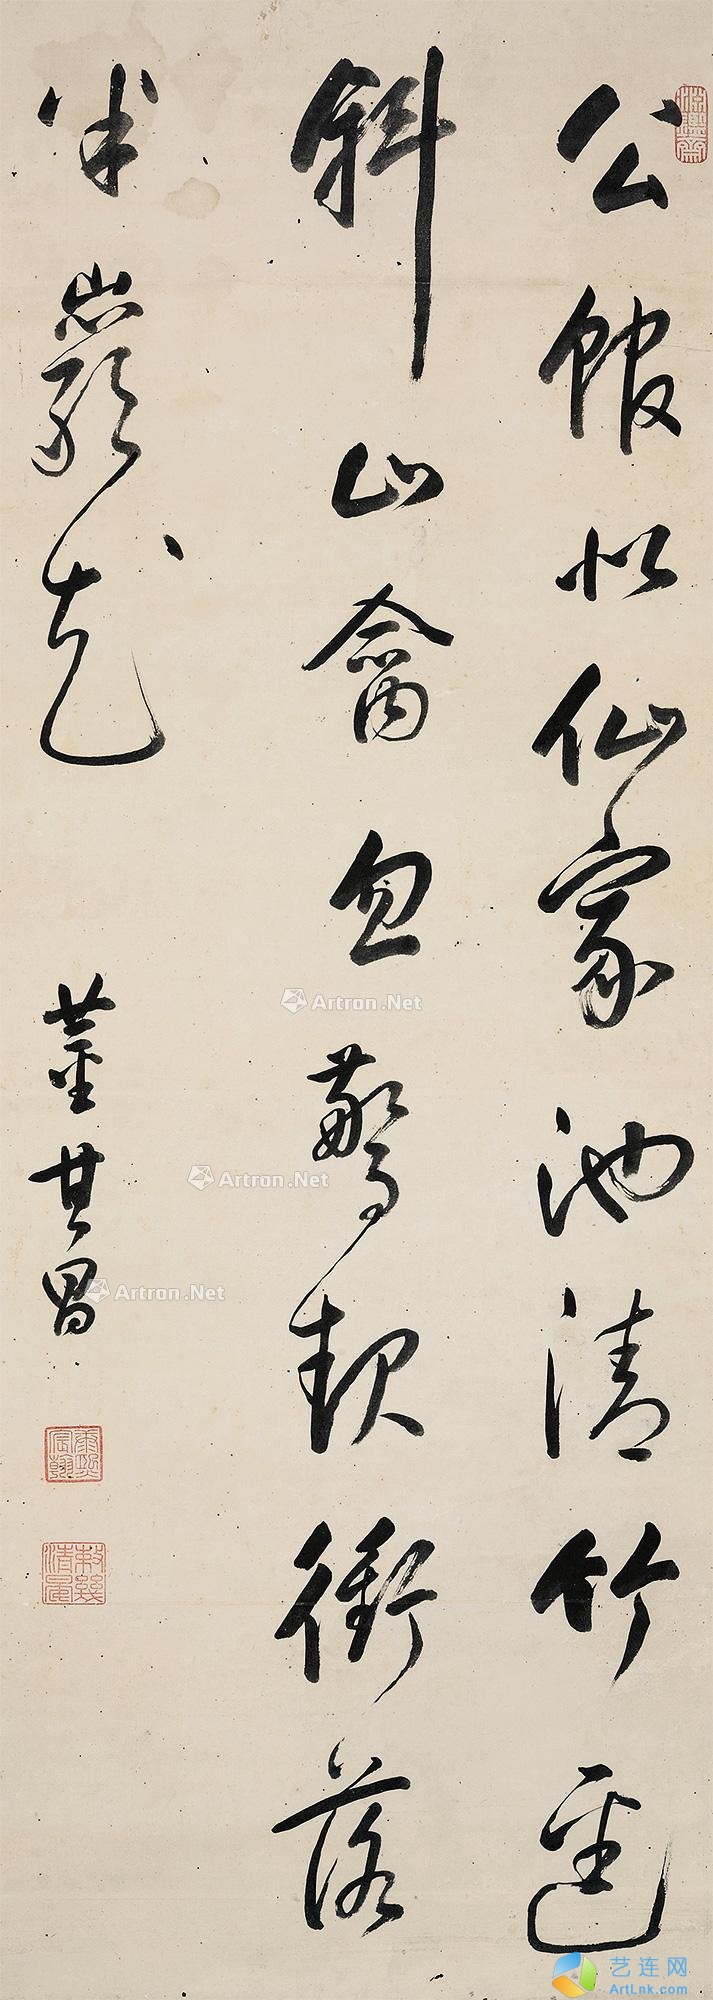 公館似仙家池清竹逕
斜山禽忽驚起衝落
半巖花
董其昌
Artron.Net
Artron.Net
Artron.Net
艺连网
ArtLnk.com